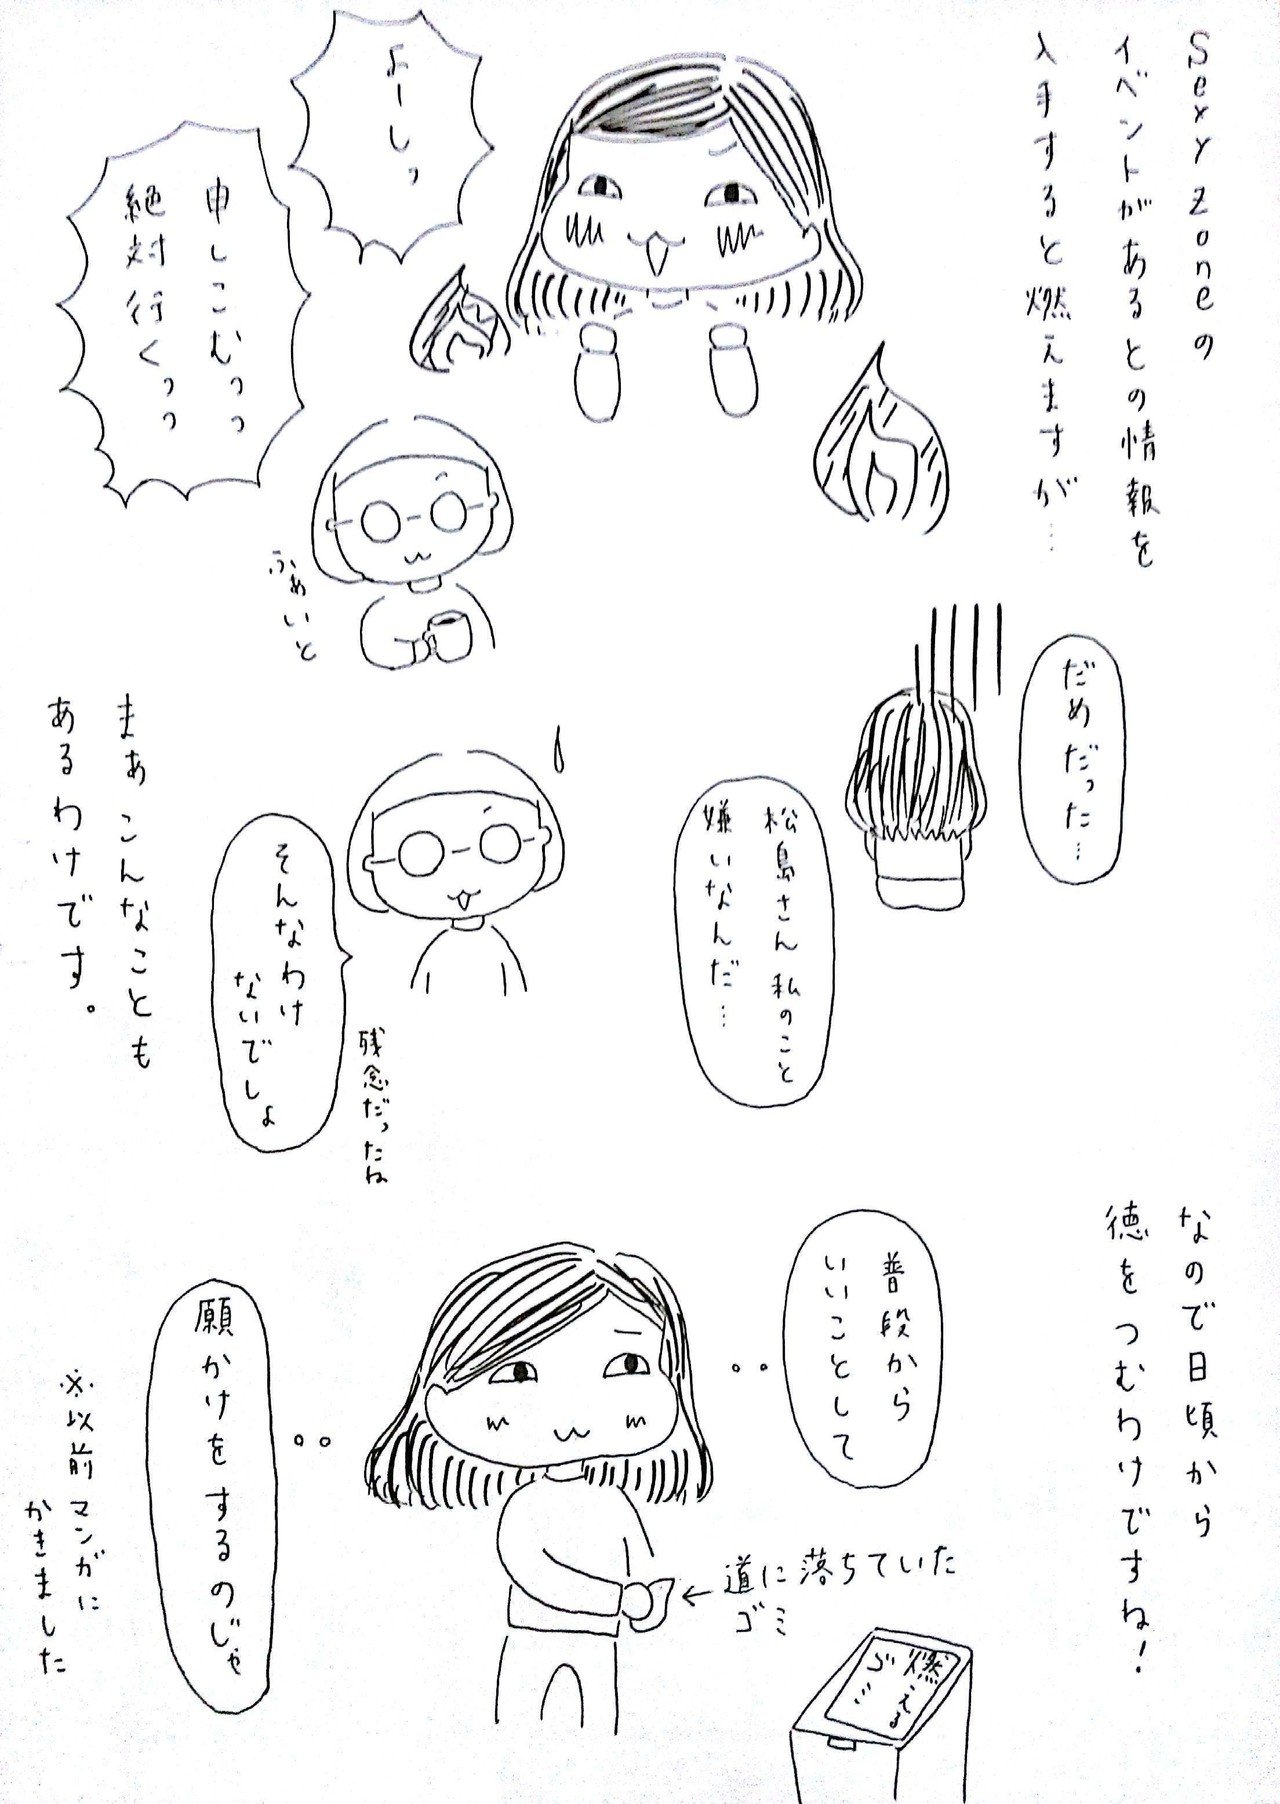 Sexy Zoneの
イベントがあるとの情報を
入手すると燃えますが…
よーしっ
申しこむっっ
絶対行くっっ
ふぁいと
だめだった…
松島さん私のこと
嫌いなんだ…
そんなわけ
ないでしょ
残念だったね
まぁこんなことも
あるわけです。
なので日頃から
徳をつむわけですね！
普段から
いいことして
願かけをするのじゃ
←道に落ちていた
ゴミ
燃える
ゴミ
※以前マンガに
かきました